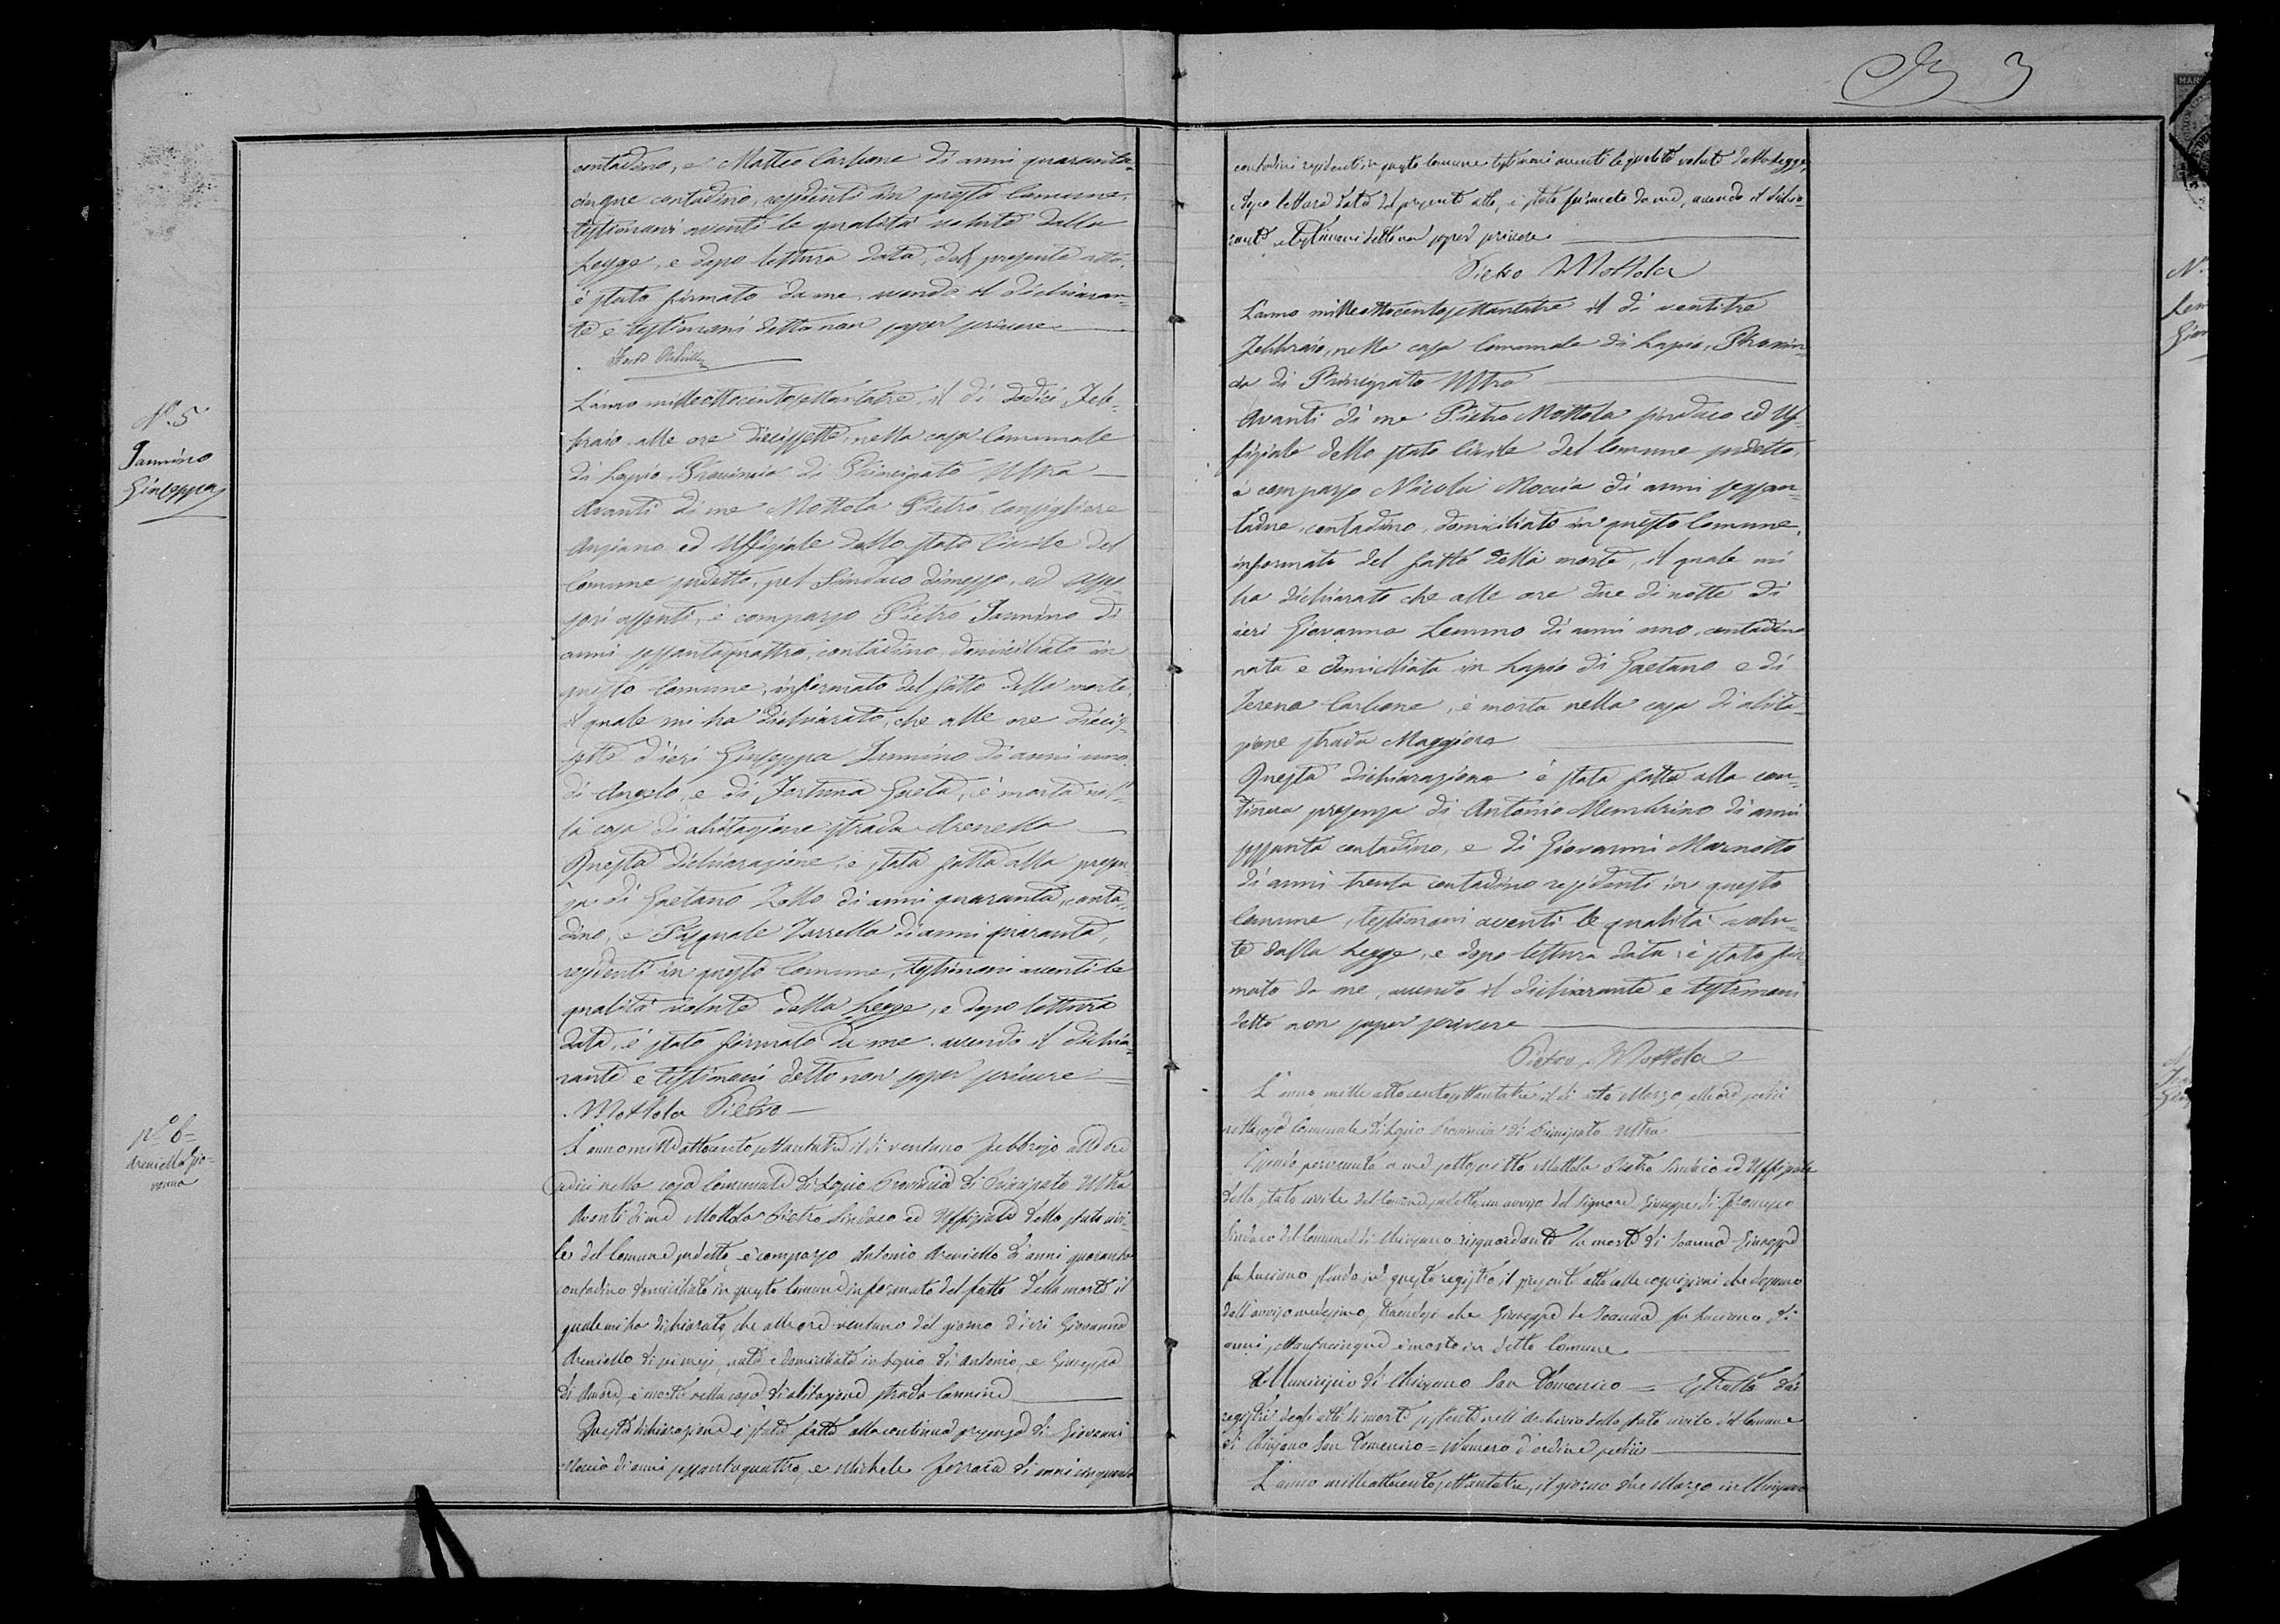 contadino, e Matteo Carbone di anni quaranta=
cinque contadino, residenti in questo Comune,
testimoni aventi le qualità volute dalla
Legge, e dopo lettura data, del presente atto,
è stato firmato da me, avendo il dichiaran=
te e testimoni detto non saper scrivere
N.° 5
Jannino
Giuseppa
L'anno milleottocentosettantatre, il dì dodici Feb=
braio, alle ore diecissette, nella casa Comunale
di Lapio Provincia di Principato Ultra
Avanti di me Mottola Pietro Consigliere
Anziano ed Uffiziale dello stato Civile del
Comune sudetto, pel Sindaco dimesso, ed Asses=
sori assenti, è comparso Pietro Jannino di
anni sessantaquattro, contadino, domiciliato in
questo Comune, informato del fatto della morte,
il quale mi ha dichiarato, che alle ore dieciss=
sette d'ieri Giuseppa Jannino di anni uno,
di Angelo, e di Fortuna Gaeta, è morta nel=
la casa di abitazione strada Arenella
Questa dichiarazione, è stata fatta alla presen
za di Gaetano Zollo di anni quaranta, conta=
dino, e Pasquale Zarrella di anni quaranta,
residenti in questo Comune, testimoni aventi le
qualità volute dalla Legge, e dopo lettura
data, è stato firmato da me, avendo il dichia=
rante e testimoni detto non saper scrivere
Mottola Pietro
N.° 6=
Areniello Gio=
vanna
L'anno milleottocentosettantatre il dì ventuno Febbrajo alle ore
sedici nella casa Comunale di Lapio Provincia di Principato Ultra
Avanti di me Mottola Pietro Sindaco ed Uffiziale dello stato civi=
le del Comune sudetto, è comparso Antonio Areniello di anni quaranta
contadino domiciliato in questo Comune informato del fatto della morte il
quale mi ha dichiarato, che alle ore ventuno del giorno d'ieri Giovanna
Areniello di sei mesi, nata e domiciliata in Lapio di Antonio, e Giuseppa
di Amore, è morta nella casa di abitazione strada
Questa dichiarazione è stata fatta alla continua presenza di Giovanni
Moccia di anni sessantaquattro, e Michele Ferrara di anni cinquanta
3
contadini residenti in questo Comune testimoni aventi le qualità volute dalla Legge,
e dopo lettura data del presente atto, è stato firmato da me, avendo il dichia=
rante e testimoni detto non saper scrivere
Pietro Mottola
L'anno milleottocentosettantatre il dì ventitre
Febbraio, nella casa Comunale di Lapio, Provin=
cia di Principato Ultra
Avanti di me Pietro Mottola sindaco ed Uf=
fiziale dello stato Civile del Comune sudetto,
è comparso Nicola Moccia di anni sessan=
tadue, contadino, domiciliato in questo Comune,
informato del fatto della morte, il quale mi
ha dichiarato che alle ore due di notte di
ieri Giovanna Lemmo di anni uno, contadina
nata e domiciliata in Lapio di Gaetano e di
Teresa Carbone, è morta nella casa di abita=
zione strada Maggiore
Questa dichiarazione è stata fatta alla con=
tinua presenza di Antonio Membrino di anni
sessanta contadino, e di Giovanni Marnotto
di anni trenta contadino residenti in questo
Comune, testimoni aventi le qualità volu=
te dalla Legge, e dopo lettura data, è stato fir=
mato da me, avendo il dichiarante e testimoni
detto non saper scrivere
Pietro Mottola
L'anno milleottocentosettantatre il dì otto Marzo, alle ore sedici
nella casa Comunale di Lapio Provincia di Principato Ultra
Essendo pervenuto a me sottoscritto Mottola Pietro Sindaco ed Uffiziale
dello stato civile del Comune sudetto un avviso del Signore Giuseppe di
Sindaco del Comune di Chiusano risguardante la morte di Ioanna Giuseppe
fu Luciano stendo sul questo registro il presente atto colle cognizioni che desumo
dall'avviso medesimo, traendosi che Giuseppe de Ioanna fu Luciano di
anni settantacinque è morto in detto Comune
Municipio di Chiusano San Domenico = Estratto dai
registri degli atti di morte esistente nell'archivio dello stato civile del Comune
di Chiusano San Domenico = Numero d'ordine sedici
L'anno milleottocentosettantatre, il giorno due Marzo in Chiusano